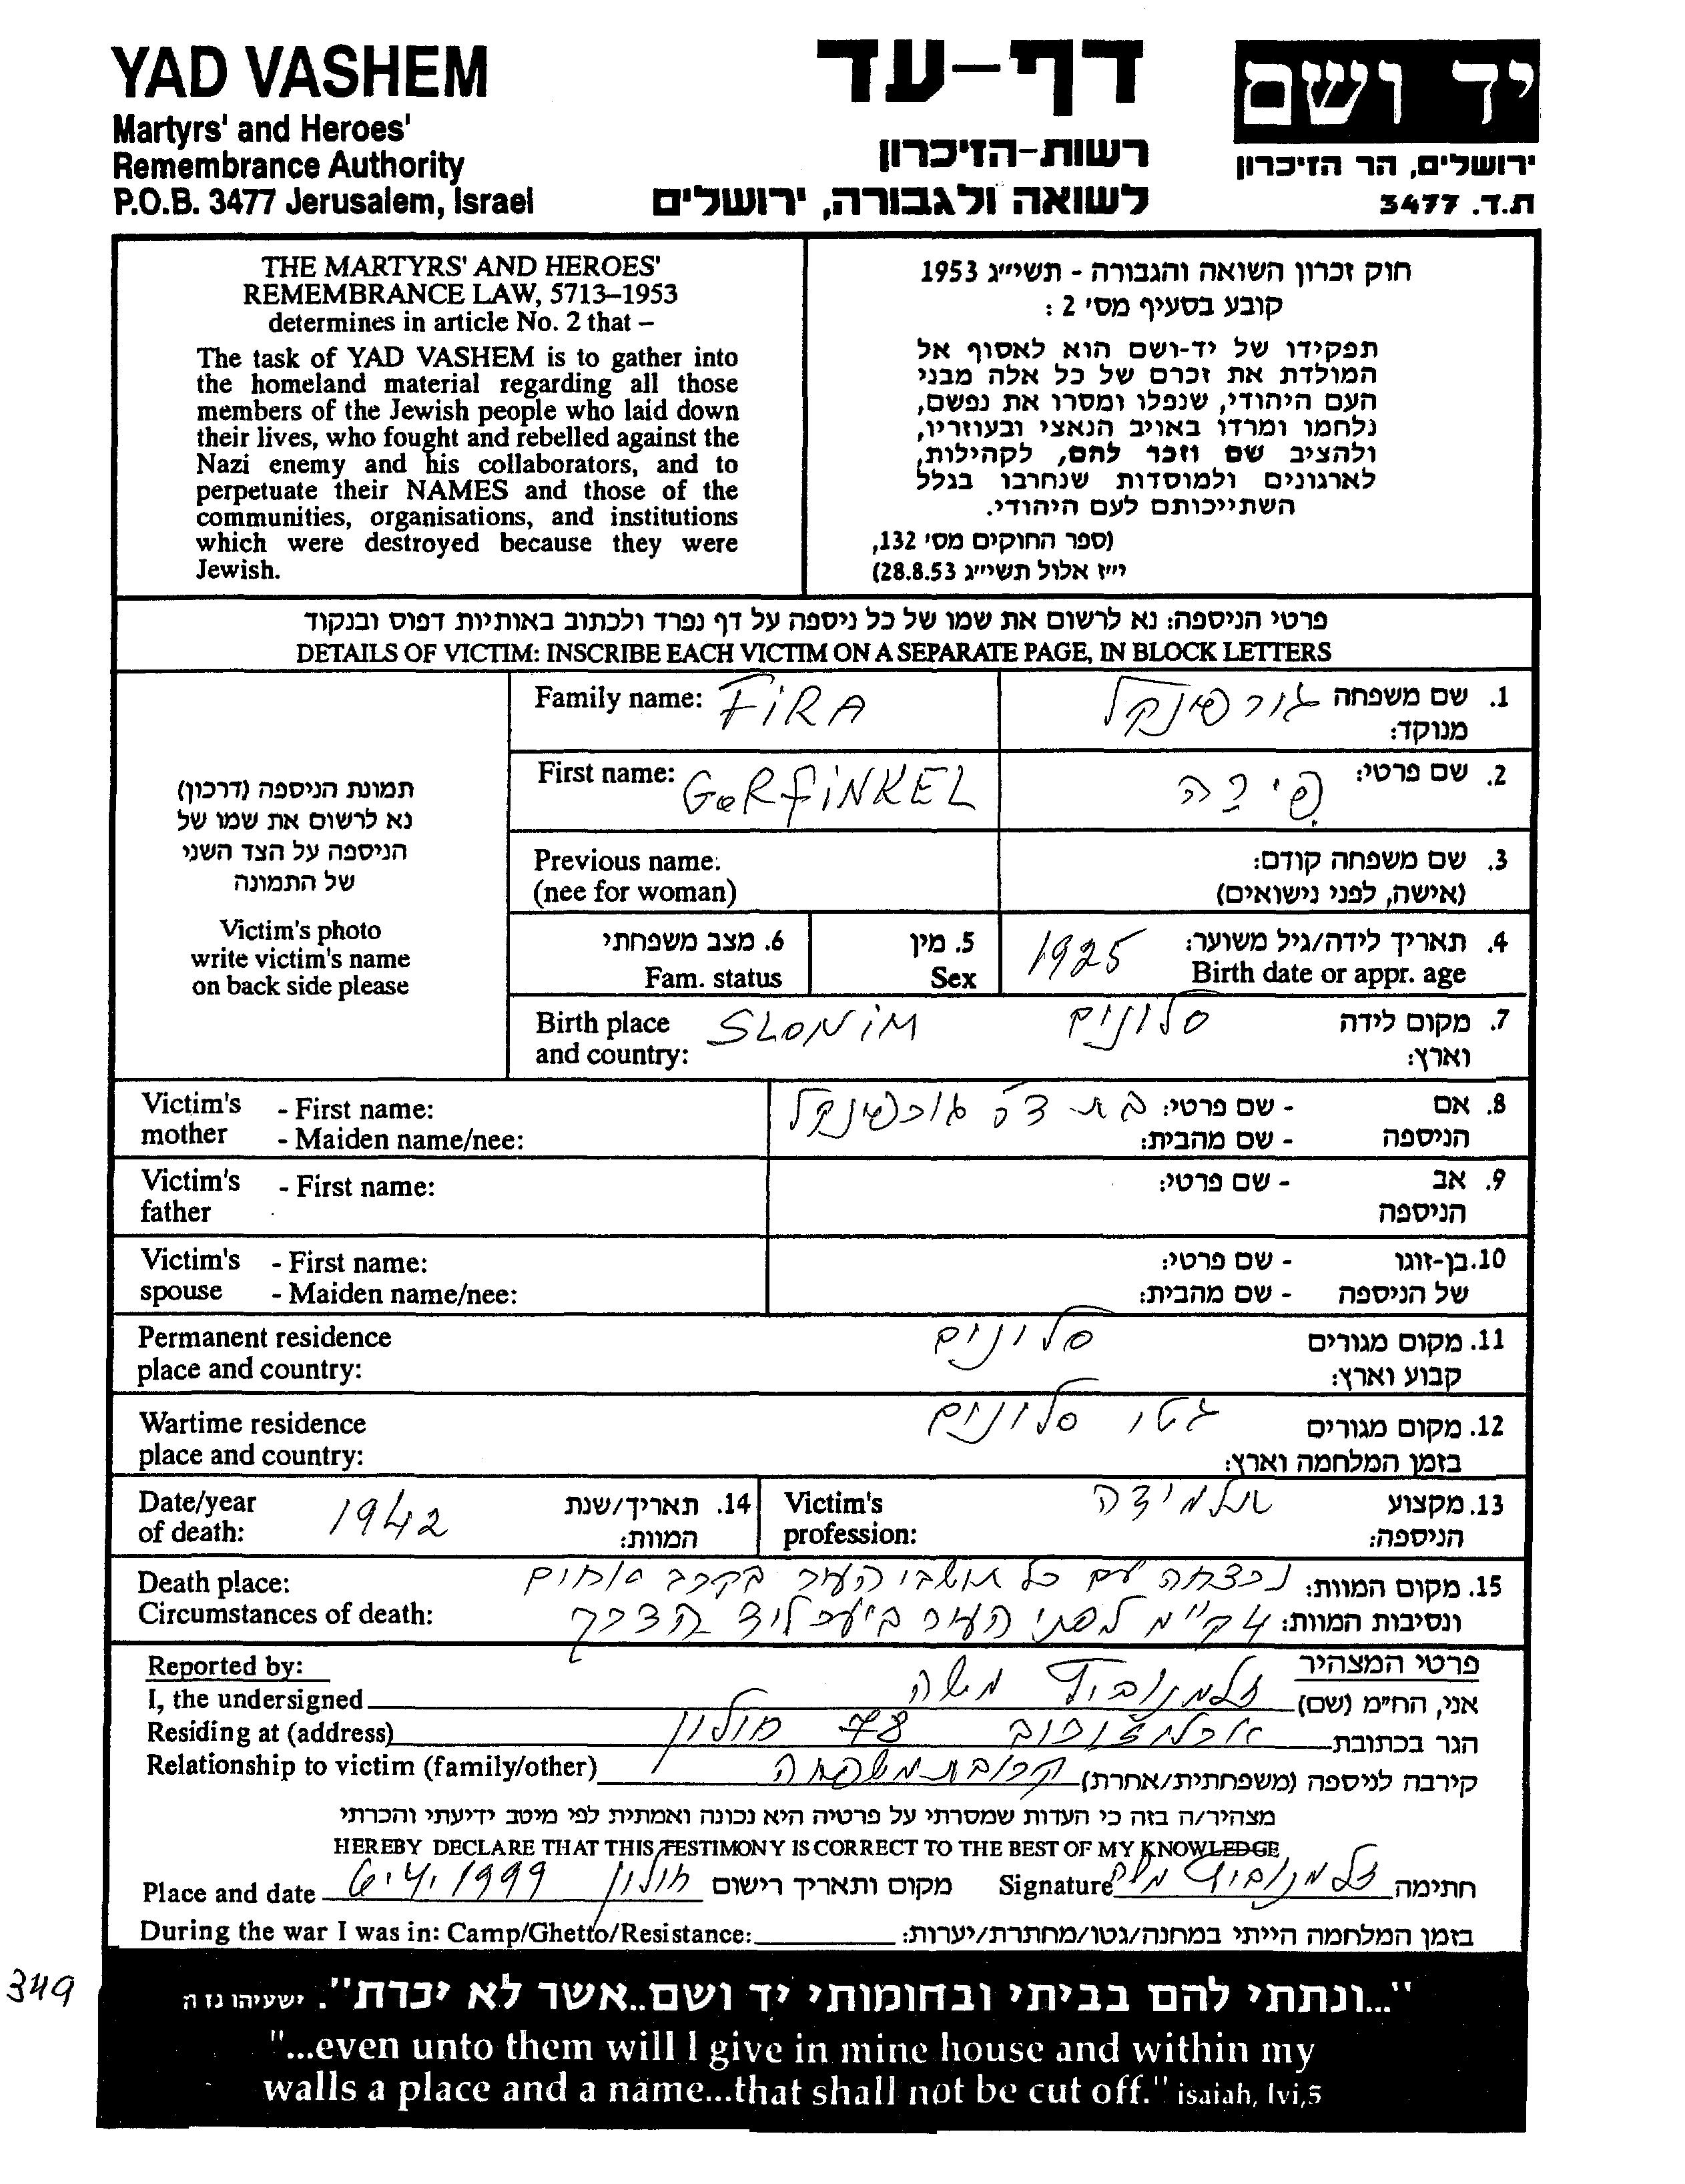 YAD VASHEM
Martyrs' and Heroes'
Remembrance Authority
P.O.B. 3477 Jerusalem, Israel
דף-עד
רשות-הזיכרון
לשואה ולגבורה, ירושלים
יד ושם
ירושלים, הר הזיכרון
ת.ד. 3477
THE MARTYRS' AND HEROES'
REMEMBRANCE LAW, 5713–1953
determines in article No. 2 that –
The task of YAD VASHEM is to gather into
the homeland material regarding all those
members of the Jewish people who laid down
their lives, who fought and rebelled against the
Nazi enemy and his collaborators, and to
perpetuate their NAMES and those of the
communities, organisations, and institutions
which were destroyed because they were
Jewish.
חוק זכרון השואה והגבורה - תשי״ג 1953
קובע בסעיף מס' 2 :
תפקידו של יד-ושם הוא לאסוף אל
המולדת את זכרם של כל אלה מבני
העם היהודי, שנפלו ומסרו את נפשם,
נלחמו ומרדו באויב הנאצי ובעוזריו,
ולהציב שם וזכר להם, לקהילות,
לארגונים ולמוסדות שנחרבו בגלל
השתייכותם לעם היהודי.
(ספר החוקים מס' 132,
י״ז אלול תשי״ג 28.8.53)
פרטי הניספה: נא לרשום את שמו של כל ניספה על דף נפרד ולכתוב באותיות דפוס ובנקוד
DETAILS OF VICTIM: INSCRIBE EACH VICTIM ON A SEPARATE PAGE, IN BLOCK LETTERS
תמונת הניספה (דרכון)
נא לרשום את שמו של
הניספה על הצד השני
של התמונה
Victim's photo
write victim's name
on back side please
Family name: FiRA
1. שם משפחה מנוקד: גורפינקל
First name: GeRFiNKEL
2. שם פרטי: פירה
Previous name:
(nee for woman)
3. שם משפחה קודם:
(אישה, לפני נישואים)
6. מצב משפחתי
Fam. status
5. מין
Sex
4. תאריך לידה/גיל משוער: 1925
Birth date or appr. age
Birth place
and country: SLONiM
7. מקום לידה
וארץ: סלונים
Victim's mother
- First name:
- Maiden name/nee:
8. אם הניספה
- שם פרטי: גורפינקל
- שם מהבית:
Victim's father
- First name:
9. אב הניספה
- שם פרטי:
Victim's spouse
- First name:
- Maiden name/nee:
10. בן-זוגו של הניספה
- שם פרטי:
- שם מהבית:
Permanent residence
place and country:
11. מקום מגורים
קבוע וארץ: סלונים
Wartime residence
place and country:
12. מקום מגורים
בזמן המלחמה וארץ: גטו סלונים
Date/year
of death: 1942
14. תאריך/שנת
המוות:
Victim's
profession:
13. מקצוע
הניספה: תלמידה
Death place:
Circumstances of death:
15. מקום המוות: נרצחה עם כל תושבי העיר בקבר אחים
ונסיבות המוות: 4 ק״מ לפני העיר ביער ליד הדרך
Reported by:
פרטי המצהיר
I, the undersigned
אני, החי״מ (שם) זלמנוביץ משה
Residing at (address)
הגר בכתובת 78 חולון
Relationship to victim (family/other)
קירבה לניספה (משפחתית/אחרת) קרובת משפחה
מצהיר/ה בזה כי העדות שמסרתי על פרטיה היא נכונה ואמתית לפי מיטב ידיעתי והכרתי
HEREBY DECLARE THAT THIS TESTIMONY IS CORRECT TO THE BEST OF MY KNOWLEDGE
Place and date 6.4.1999 חולון מקום ותאריך רישום Signature זלמנוביץ משה חתימה
During the war I was in: Camp/Ghetto/Resistance:
בזמן המלחמה הייתי במחנה/גטו/מחתרת/יערות:
349
"...ונתתי להם בביתי ובחומותי יד ושם..אשר לא יכרת". ישעיהו נו ה
"...even unto them will I give in mine house and within my
walls a place and a name...that shall not be cut off." isaiah, lvi,5